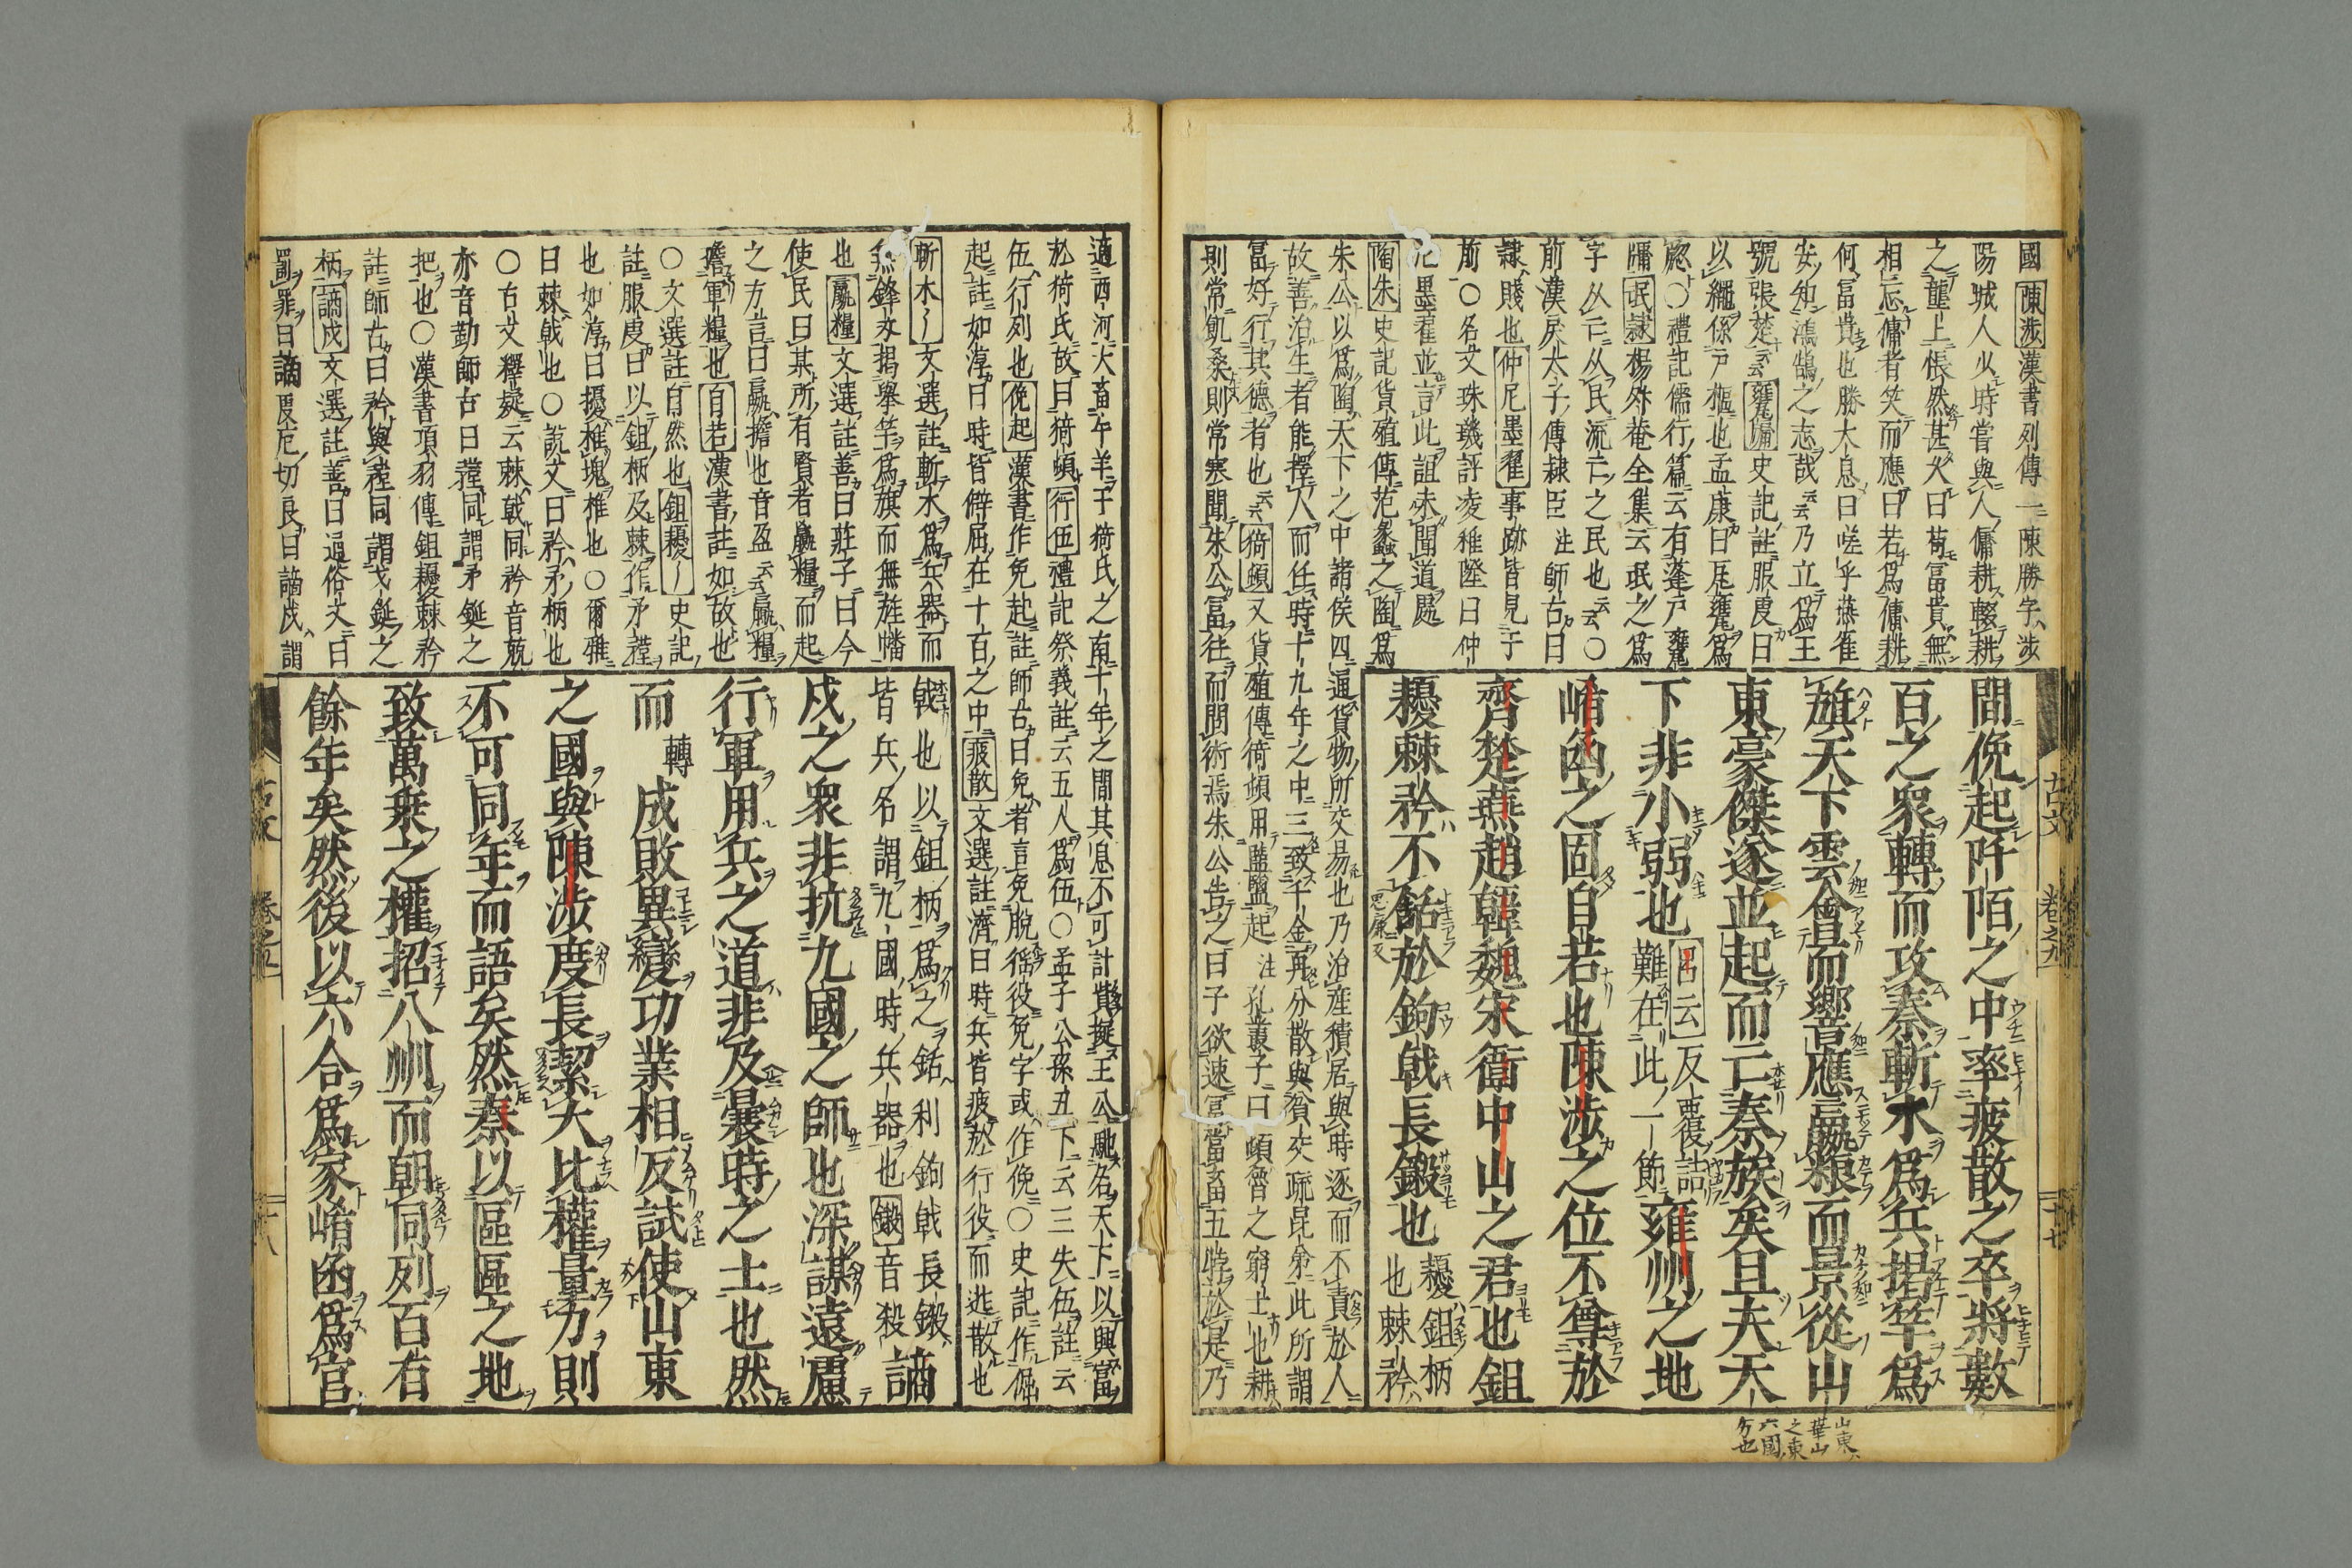 國陳涉漢書列傳一陳勝字涉
陽城人少時嘗與人傭耕輟耕
之壟上悵然甚久曰苟冨貴無
相忘傭者笑而應曰若爲傭耕
何冨貴也勝大息曰嗟乎燕雀
安知鴻鵠之志哉云云乃立爲王
號張楚云云甕牖史記註服虔曰
以繩係戸樞也孟康曰瓦甕爲
牕○禮記儒行篇云有蓬戸甕
牖氓隷楊升菴全集云氓之爲
字从亡从民流亡之民也云云○
前漢戾太子傳隷臣注師古曰
隷賤也仲尼墨翟事跡皆見于
前○名文珠璣評凌稚隆曰仲
尼墨翟並言此誼未聞道處
陶朱史記貨殖傳范蠡之陶爲
朱公以爲陶天下之中諸侯四通貨物所交易也乃治産積居與時逐而不責於人
故善治生者能擇人而任時十九年之中三致千金再分散與貧交疏昆弟此所謂
冨好行其德者也云云猗頓又貨殖傳猗頓用盬鹽起注孔叢子曰頓魯之窮士也耕
則常飢桑則常寒聞朱公冨往而問術焉朱公告之曰子欲速冨當畜五牸於是乃
間俛起阡陌之中率疲散之卒將數
百之衆轉而攻秦斬木爲兵揭竿爲
旗天下雲會而響應贏粮而景從山
東豪傑遂並起而亡秦族矣且夫天
下非小弱也呂云反覆詰難在此一節雍州之地
崤函之固自若也陳涉之位不尊於
齊楚燕趙韓魏宋衞中山之君也鉏
耰棘矜不銛於鉤戟長鎩也耰鉏柄也棘矜
山東ハ
華山
之東
六國ノ
分也
古文 卷之九 二十七
適西河大畜牛羊于猗氏之南十年之間其息不可計貲擬王公馳名天下以興富
於猗氏故曰猗頓行伍禮記祭義註云五人爲伍○孟子公孫丑下云三失伍註云
伍行列也俛起漢書作免起註師古曰免者言免脱徭役免字或作俛○史記作倔
起註如淳曰時皆僻屈在十百之中疲散文選註濟曰時兵皆疲於行役而逃散也
斬木〱文選註斬木爲兵器而
無鋒刃揭擧竿爲旗而無旌幡
也贏糧文選註善曰莊子曰今
使民曰某所有賢者贏糧而起
之方言曰贏擔也音盈云云贏糧
擔軍糧也自若漢書註如故也
○文選註自然也鉏耰〱史記
註服虔曰以鉏柄及棘作矛䂎
也如淳曰擾椎塊椎也○爾雅
曰棘戟也○説文曰矜矛柄也
○古文釋疑云棘戟同矜音兢
亦音勤師古曰䂎同謂矛鋋之
把也○漢書項羽傳鉏耰棘矜
註師古曰矜與䂎同謂戈鋋之
柄謫戍文選註善曰通俗文曰
罰罪曰謫度厄切良曰謫戍謂
戟也以鉏柄爲之銛利鉤戟長鎩
皆兵名謂九國時兵器也鎩音殺謫
戍之衆非抗九國之師也深謀遠慮
行軍用兵之道非及曩時之士也然
而轉成敗異變功業相反試使山東
之國與陳涉度長絜大比權量力則
不可同年而語矣然秦以區區之地
致萬乗之權招八州而朝同列百有
餘年矣然後以六合爲家崤函爲宮